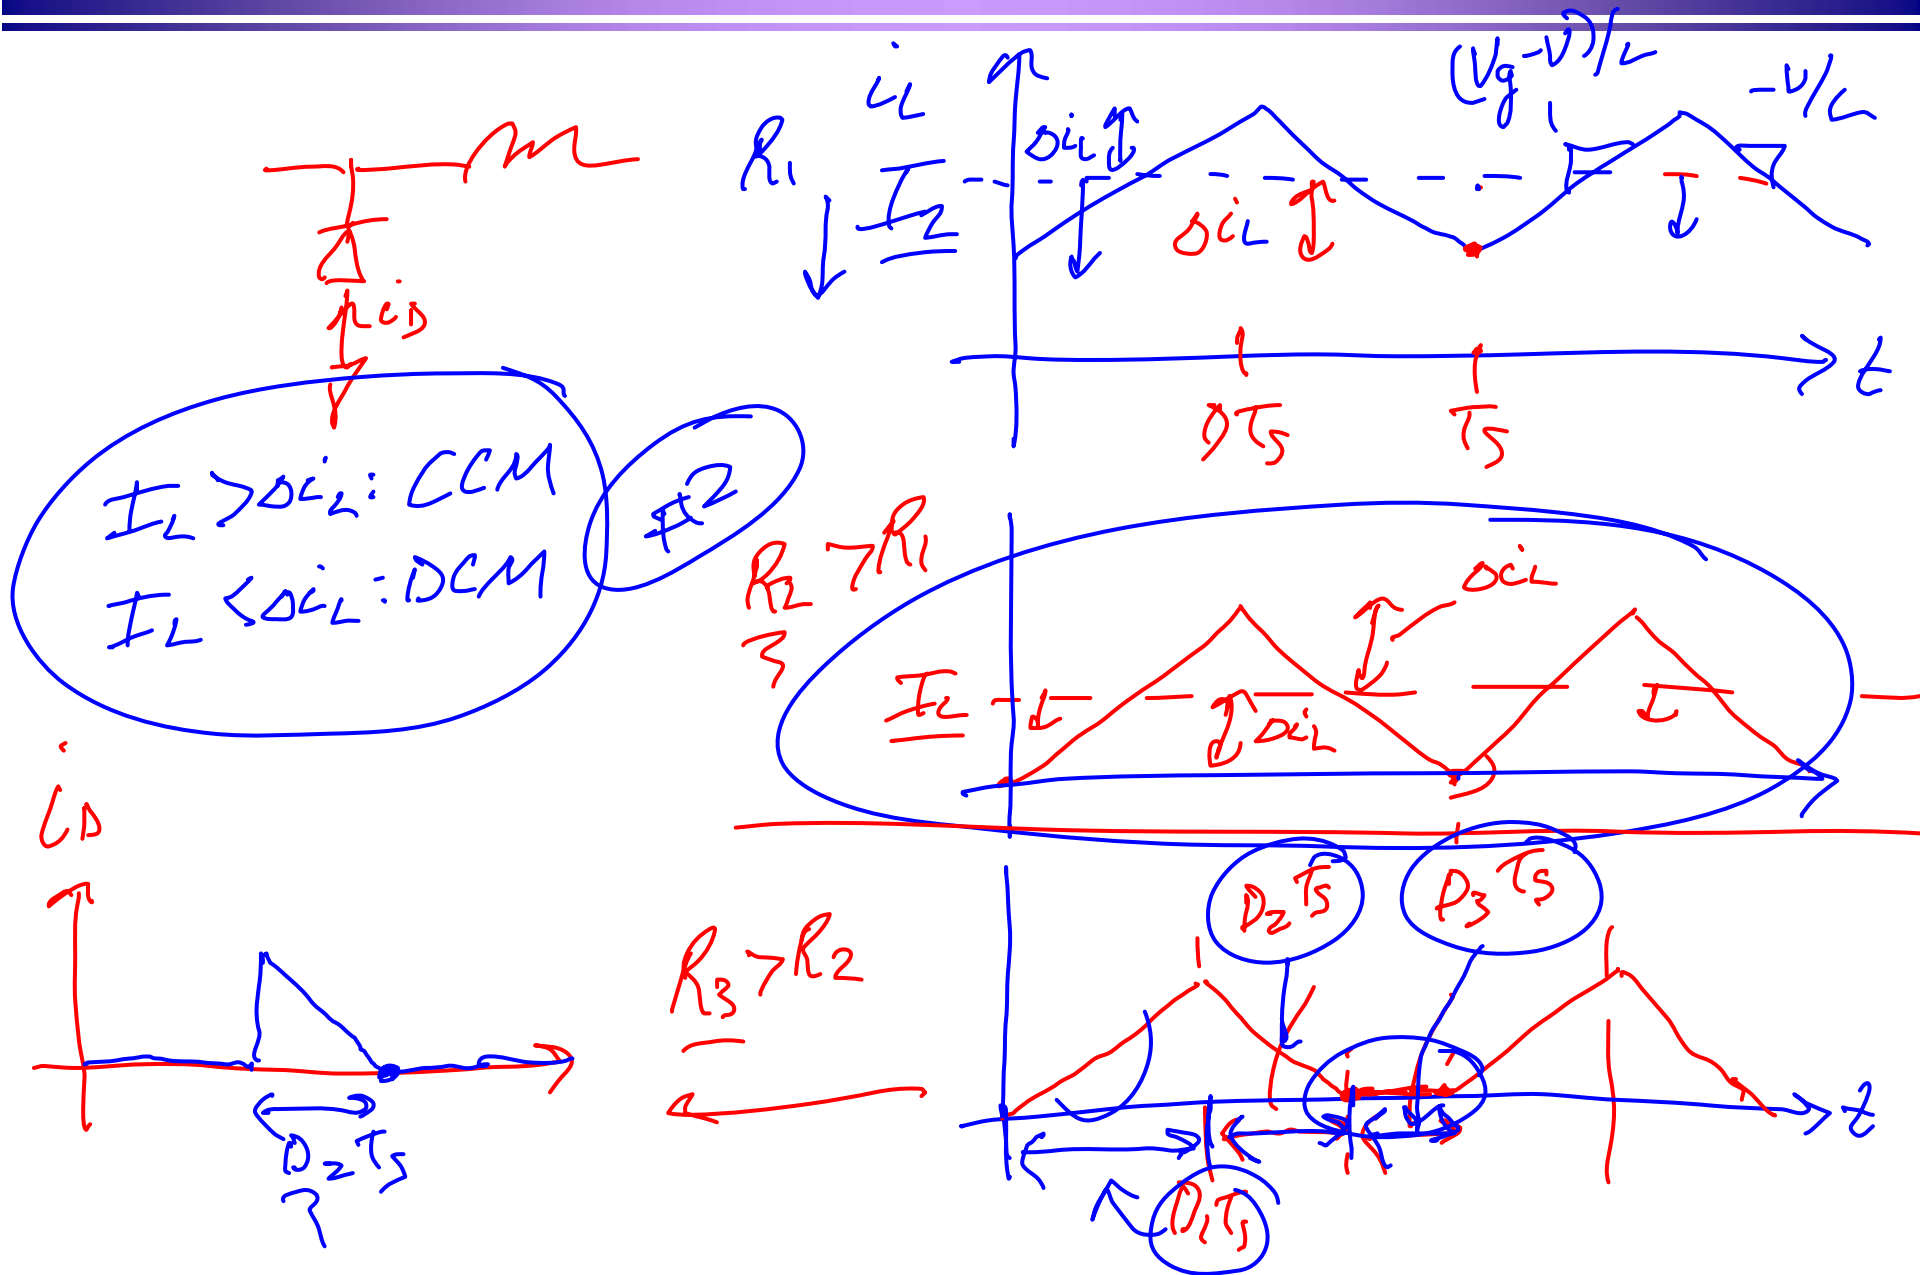 i_L
(Vg-V)/L
-V/L
R1
Δi_L
I_L
Δi_L
i_D
t
DTs
Ts
I_L > Δi_L : CCM
#2
I_L < Δi_L : DCM
R2 > R1
Δi_L
I_L
Δi_L
i_D
D2Ts
D3Ts
R3 > R2
t
D2Ts
?
D1Ts